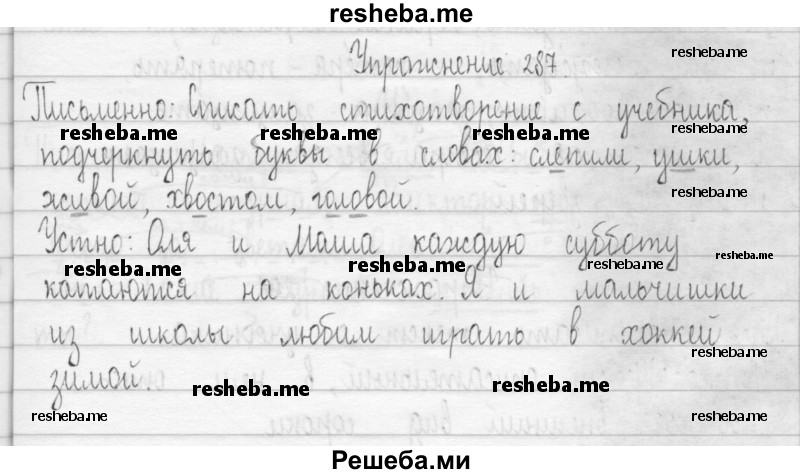 resheba.me
Упражнение 287 resheba.me
Письменно: Списать стихотворение с учебника,
resheba.me resheba.me resheba.me resheba.me
подчеркнуть буквы в словах: слепили, ушки,
живой, хвостом, головой. resheba.me
Устно: Оля и Маша каждую субботу
resheba.me resheba.me resheba.me resheba.me
катаются на коньках. Я и мальчишки
из школы любим играть в хоккей
resheba.me
зимой. resheba.me resheba.me
resheba.me resheba.me
Решеба.ми